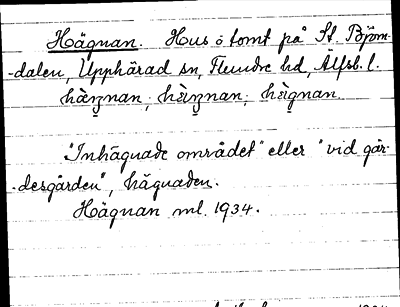 Hägnan. Hus o tomt på St. Björn-
-dalen, Upphärad sn, Flundre hd, Älfsb. l.
hæ̀ŋnan; hæ̀ŋnan; hæ̀gnan.
"Inhägnade området" eller "vid går-
-desgården", hägnaden.
Hägnan ml. 1934.